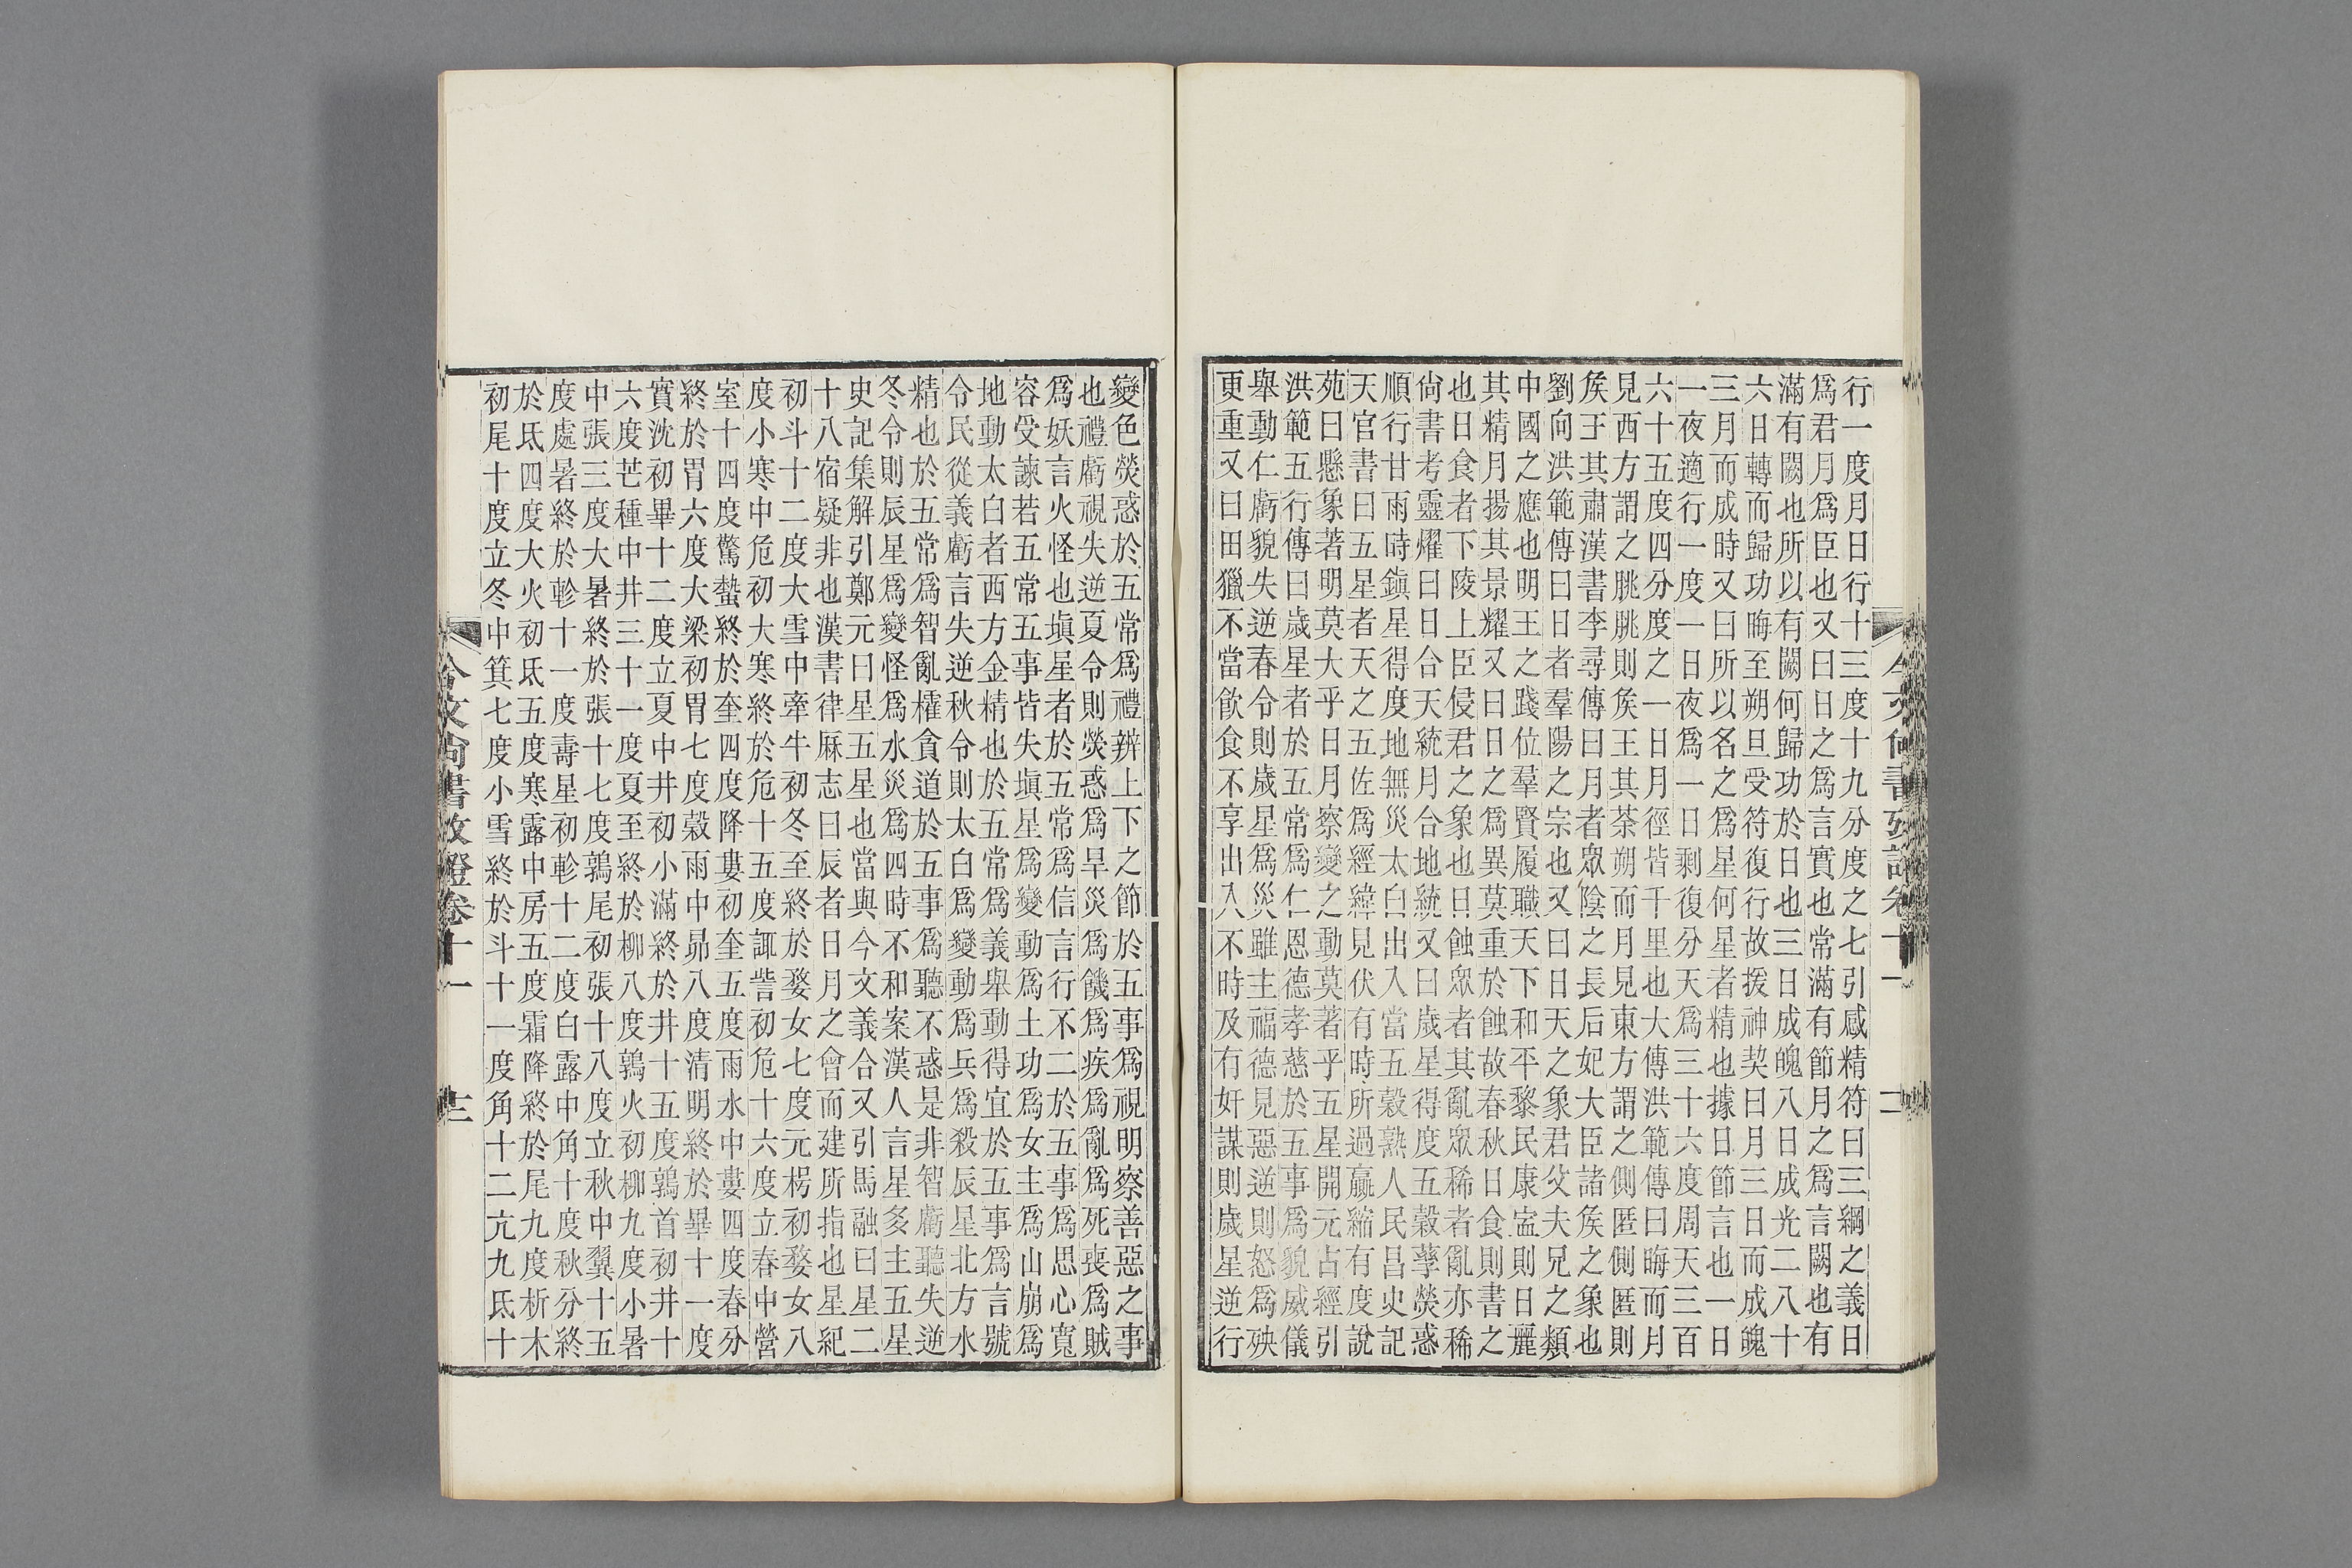 行一度月日行十三度十九分度之七引感精符曰三綱之義日
爲君月爲臣也又曰日之爲言實也常滿有節月之爲言闕也有
滿有闕也所以有闕何歸功於日也三日成魄八日成光二八十
六日轉而歸功晦至朔旦受符復行故援神契曰月三日而成魄
三月而成時又曰所以名之爲星何星者精也據日節言也一日
一夜適行一度一日夜爲一日剩復分天爲三十六度周天三百
六十五度四分度之一日月徑皆千里也大傳洪範傳曰晦而月
見西方謂之朓朓則矦王其荼朔而月見東方謂之側匿側匿則
矦王其肅漢書李尋傳曰月者眾陰之長后妃大臣諸矦之象也
劉向洪範傳曰日者羣陽之宗也又曰日天之象君父夫兄之類
中國之應也明王之踐位羣賢履職天下和平黎民康寍則日麗
其精月揚其景耀又曰日之爲異莫重於蝕故春秋日食則書之
也日食者下陵上臣侵君之象也日蝕眾者其亂眾稀者亂亦稀
尙書考靈燿曰日合天統月合地統又曰歲星得度五穀孳熒惑
順行甘雨時鎭星得度地無災太白出入當五穀熟人民昌史記
天官書曰五星者天之五佐爲經緯見伏有時所過贏縮有度說
苑曰懸象著明莫大乎日月察變之動莫著乎五星開元占經引
洪範五行傳曰歲星者於五常爲仁恩德孝慈於五事爲貌威儀
舉動仁虧貌失逆春令則歲星爲災雖主福德見惡逆則怒爲殃
更重又曰田獵不當飮食不享出入不時及有奸謀則歲星逆行
變色熒惑於五常爲禮辨上下之節於五事爲視明察善惡之事
也禮虧視失逆夏令則熒惑爲旱災爲饑爲疾爲亂爲死喪爲賊
爲妖言火怪也塡星者於五常爲信言行不二於五事爲思心寬
容受諫若五常五事皆失塡星爲變動爲土功爲女主爲山崩爲
地動太白者西方金精也於五常爲義舉動得宜於五事爲言號
令民從義虧言失逆秋令則太白爲變動爲兵爲殺辰星北方水
精也於五常爲智亂權貪道於五事爲聽不惑是非智虧聽失逆
冬令則辰星爲變怪爲水災爲四時不和案漢人言星多主五星
史記集解引鄭元曰星五星也當與今文義合又引馬融曰星二
十八宿疑非也漢書律厤志曰辰者日月之會而建所指也星紀
初斗十二度大雪中牽牛初冬至終於婺女七度元枵初婺女八
度小寒中危初大寒終於危十五度諏訾初危十六度立春中營
室十四度驚蟄終於奎四度降婁初奎五度雨水中婁四度春分
終於胃六度大梁初胃七度穀雨中昴八度清明終於畢十一度
實沈初畢十二度立夏中井初小滿終於井十五度鶉首初井十
六度芒種中井三十一度夏至終於柳八度鶉火初柳九度小暑
中張三度大暑終於張十七度鶉尾初張十八度立秋中翼十五
度處暑終於軫十一度壽星初軫十二度白露中角十度秋分終
於氐四度大火初氐五度寒露中房五度霜降終於尾九度析木
初尾十度立冬中箕七度小雪終於斗十一度角十二亢九氐十
今文尚書攷證卷十一